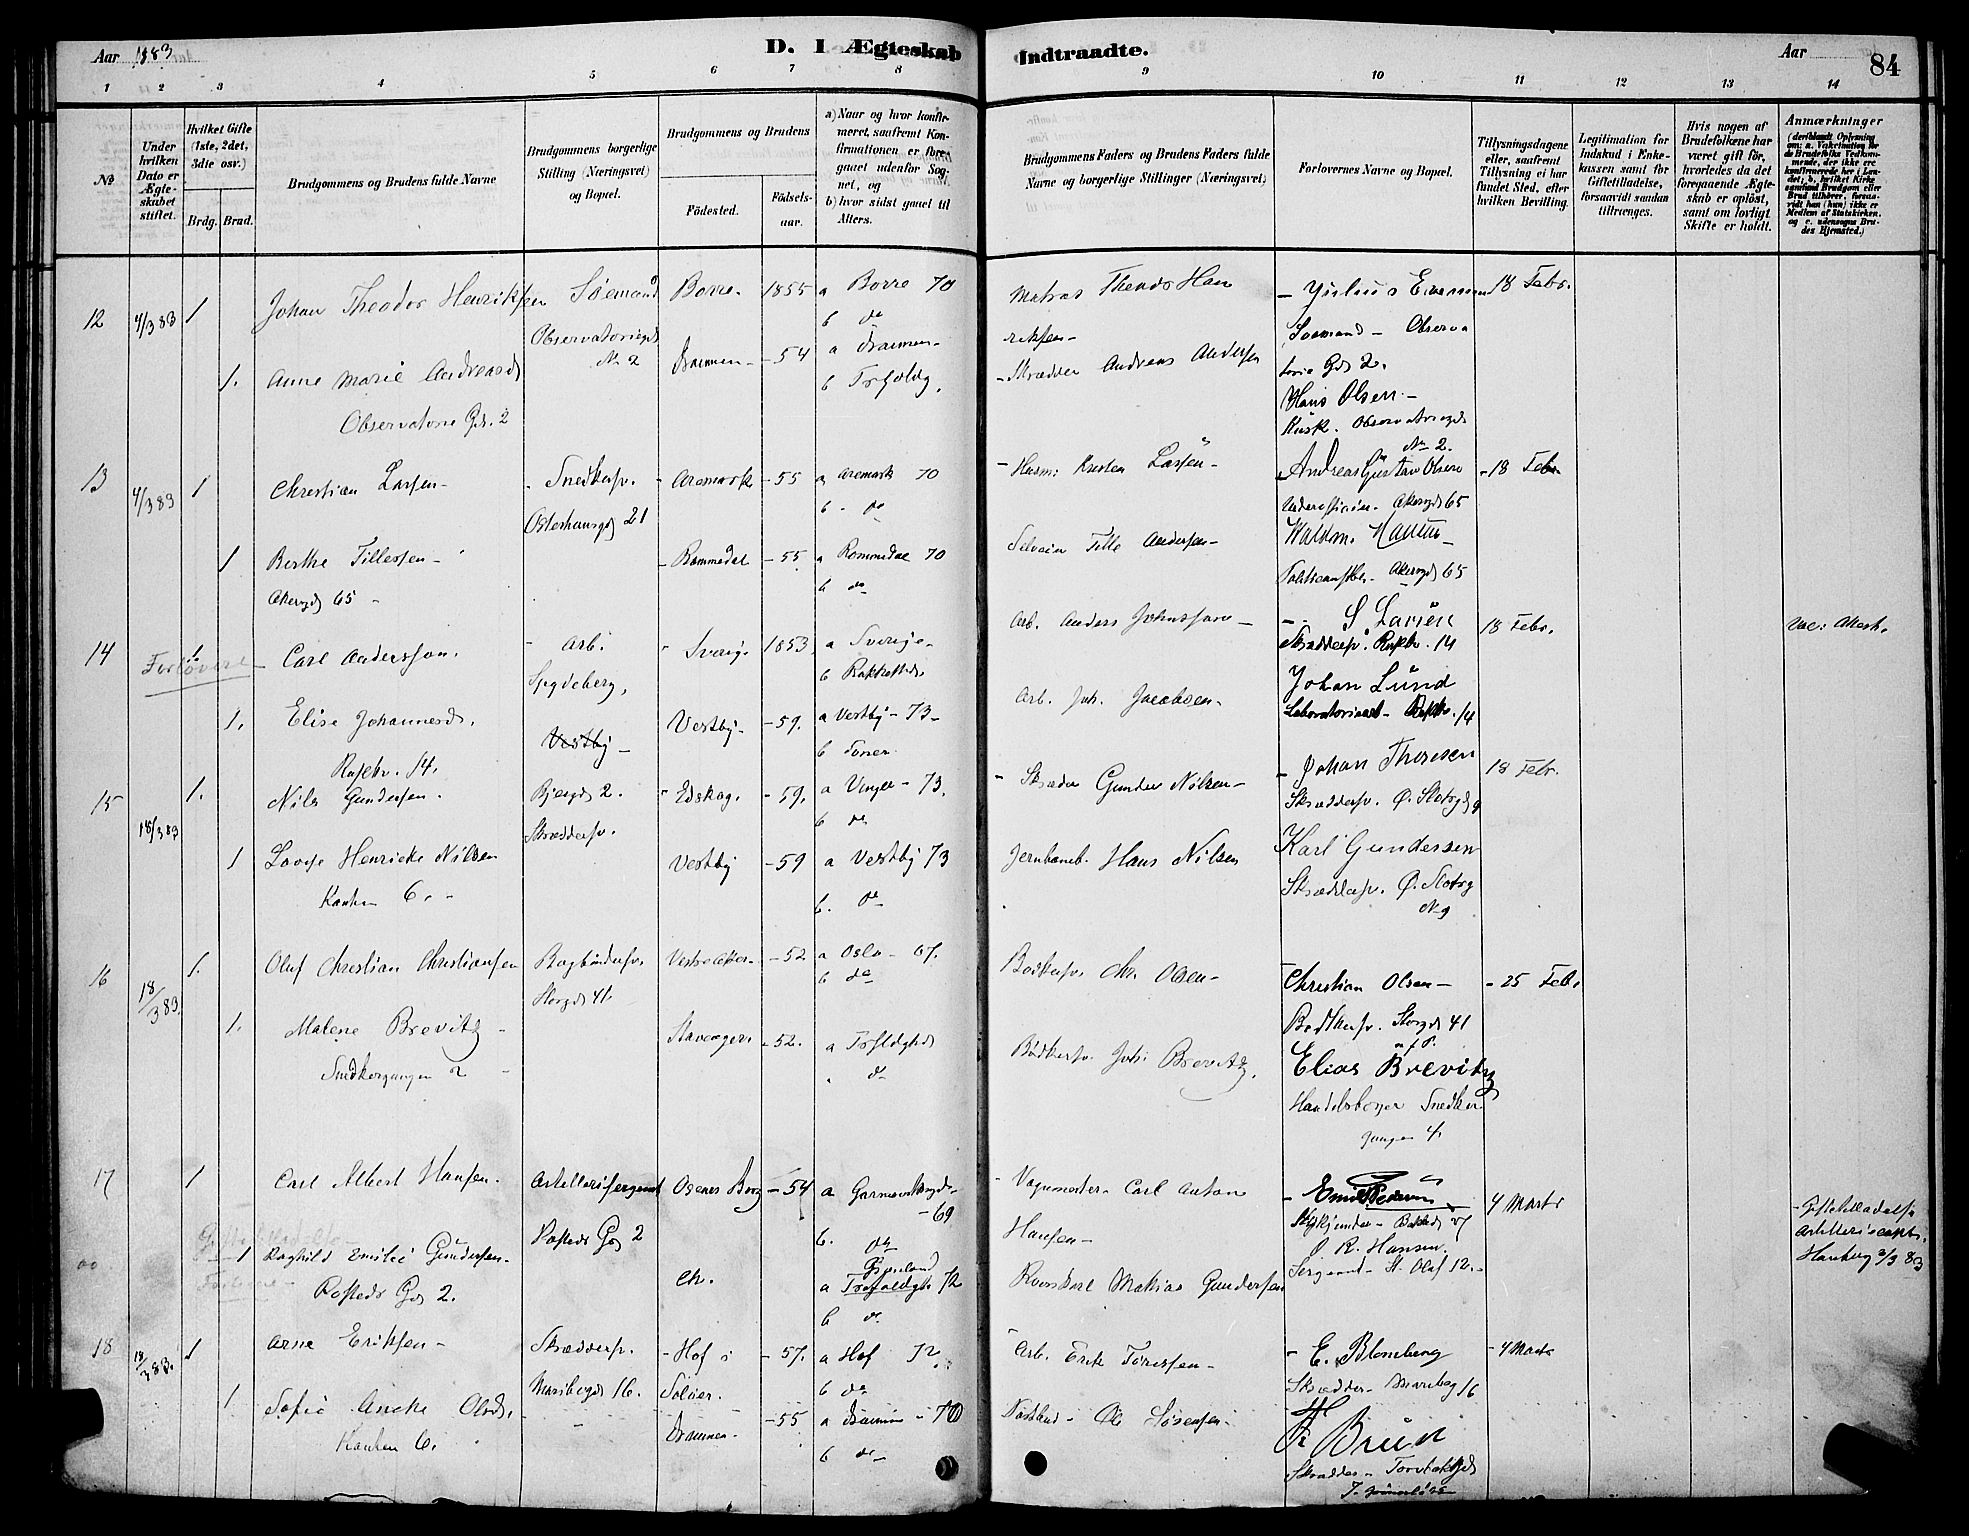 Aar 1883
D. I Ægteskab Indtraadte.
Aar
84
1 2 3 4 5 6 7 8 9 10 11 12 13 14
№
Under hvilken Dato er Ægteskabet stiftet.
Hvilket Gifte (1ste, 2det, 3die osv.)
Brdg. Brud.
Brudgommens og Brudens fulde Navne
Brudgommens borgerlige Stilling (Næringsvei) og Bopæl.
Brudgommens og Brudens
Fødested.
Fødselsaar.
a) Naar og hvor konfirmeret, saafremt Konfirmationen er foregaaet udenfor Sognet, og
b) hvor sidst gaaet til Alters.
Brudgommens Faders og Brudens Faders fulde Navne og borgerlige Stillinger (Næringsvei)
Forlovernes Navne og Bopæl.
Tillysningsdagene eller, saafremt Tillysning ei har fundet Sted, efter hvilken Bevilling.
Legitimation for Indskud i Enkekassen samt for Giftetilladelse, forsaavidt saadan tiltrænges.
Hvis nogen af Brudefolkene har været gift før, hvorledes da det foregaaende Ægteskab er opløst, samt om lovligt Skifte er holdt.
Anmærkninger
(deriblandt Oplysning om: a. Vakcination for de Brudefolks Vedkommende, der ikke ere konfirmerede her i Landet; b. hvilket Kirkesamfund Brudgom eller Brud tilhører, forsaavidt han (hun) ikke er Medlem af Statskirken, og c. udensogns Brudes Hjemsted.)
12 4/3 83 1 Johan Theodor Henriksen Sømand Borre. 1855 a Borre 70
Observatoriegd № 2
b do
1. Anne Marie Andreasd Drammen - 54 a Drammen
b Trefoldg.
Observatorie Gd. 2
Matros Theodor Henriksen
Skrædder Andreas Andersen
Julius Evensen 18 Febr.
Sømand - Observatorie Gd 2.
Hans Olsen -
Kusk. Observatoriegd № 2.
13 4/3 83 1 Christian Larsen - Snedkersv. Aremark - 55 a Aremark 70
Osterhausgd 21
b. do
1 Berthe Tillessen - Rommedal - 55 a Rommedal 70
Akersgd 65 -
b do
Husm: Kristen Larsen -
Selveier Tille Andersen -
Andreas Gustav Olsen - 18 Febr
Underofficier. Akersgd 65
Waldm. Hansen
Akersgd 65
14 1. Carl Andersson. Arb. Sverige 1853. a Sverige -
Forlovere
Spydeberg,
b
1. Elise Johannesd. Vestby - Vestby - 59. a Vestby - 73 -
14.
b Soner
Arb. Anders Johnsson -
Arb. Joh. Jacobsen -
S Larsen 18 Febr.
Skræddersv. 14
Johan Lund
14
Vac: Attest.
15 18/3 83 1. Nils Gundersen. Bjergd 2. Edskog. - 59. a Vinger - 73.
Skræddersv.
b do
1 Lovise Henricke Nilsen Vestby - 59 a Vestby 73
Kanten 6. -
b. do
Skræder Gunder Nilsen -
Jernbaneb. Hans Nilsen
Johan Thoresen 18 Febr.
Skræddersv. Ø. Slotsgd 9
Karl Gundersen
Skræddersv. Ø. Slotsg № 9
16 18/3 83 1. Oluf Christian Christiansen Bogbindersv. Vestre Aker - 52 a Oslo - 67.
Storgd 41.
b do
1. Malene Brevitz - Stavanger. - 52. a Trefoldghd
Snedkergangen 2 -
do
Bødkersv. Chr. Olsen -
Bødkersv. Joh: Brevitz.
Christian Olsen - - 25 Feb.
Bødkersv. Storgd 41
Elias Brevitz
Handelsborger Snedkergangen 4.
17 1 Carl Albert Hansen. Artellerisergeant Agenes Borg - 54 a Garnisonsmgd - 69
Rosteds Gd 2
b. do
1 Raghild Emilie Gundersen - Ch. a Grønland Trefoldgh. 72
Rosteds Gd 2.
b do
Vognmester Carl Anton Hansen -
Roerskarl Mathias Gundersen
Emil Pedersen 4 Marts
O. R. Hansen.
Sergeant - St. Olaf 12. -
Giftetilladelse
Artelleri
Hauberg 2/3 83
18 18/3 83. 1 Arne Eriksen - Skræddersv. - Hof i Soløer. - 57. a Hof 72.
Maribogd 16.
b do
1 Sofie Ancke Olsd. Drammen - - 55 a Drammen - 70
Kanten 6.
b do
Arb. Erik Torersen -
Ole Sørensen -
E. Blomberg - 4 Marts
Skrædder - Maribog 16
Fr Bruun
Skrædder - Torvbakkgd